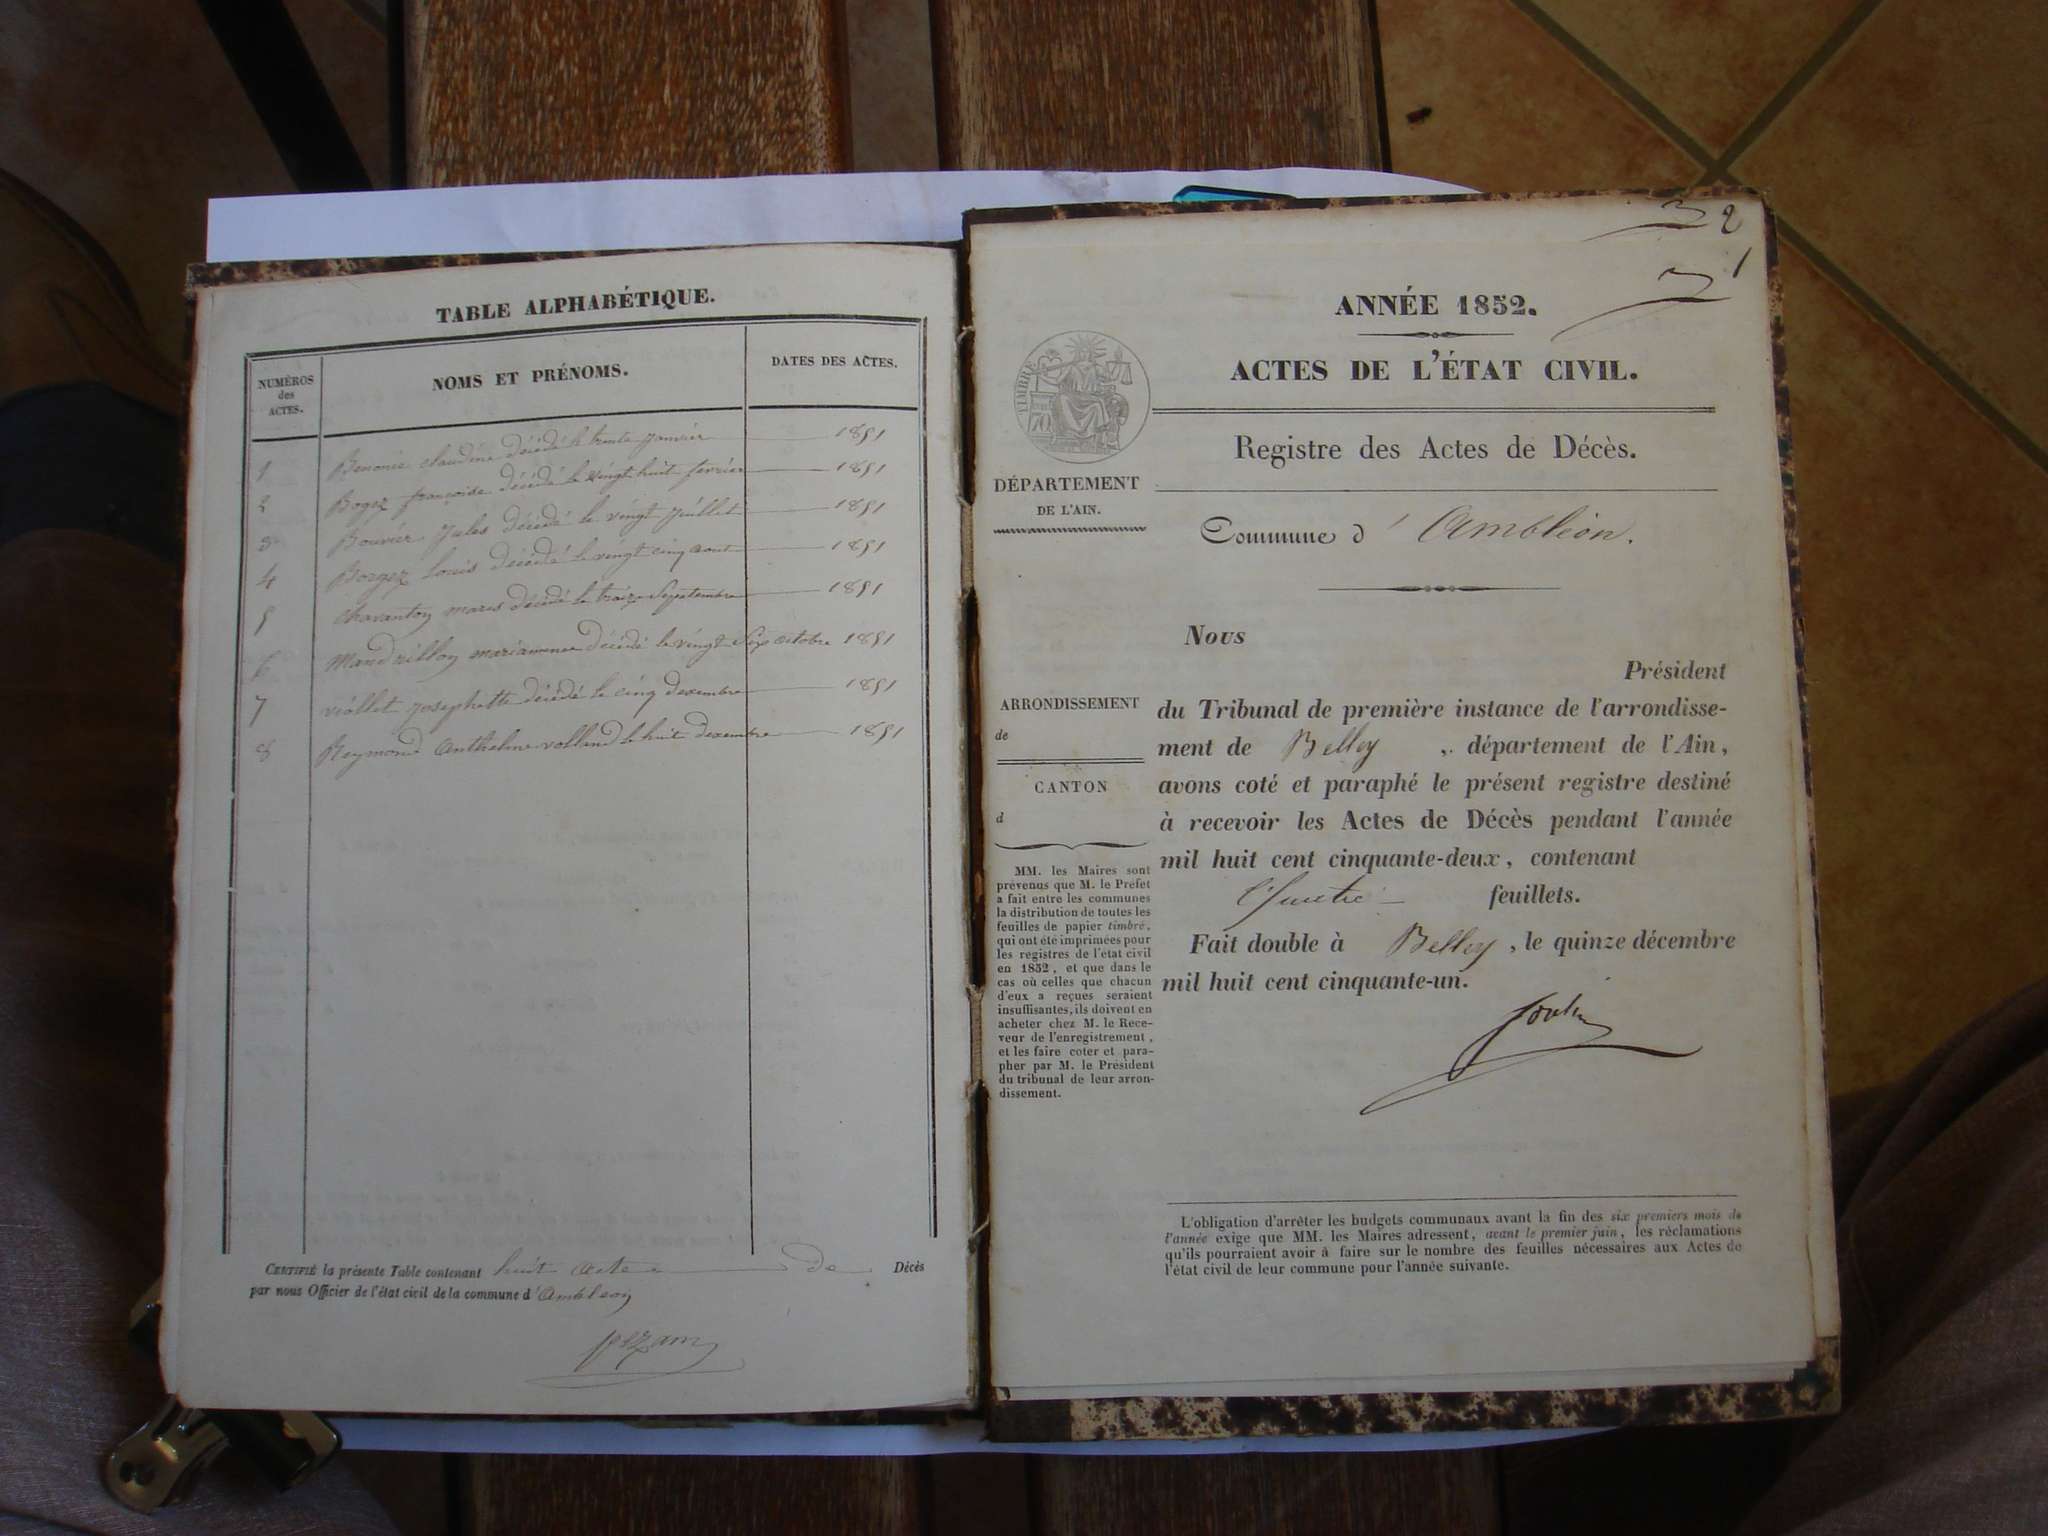 TABLE ALPHABÉTIQUE.
NUMÉROS
des
ACTES.
NOMS ET PRÉNOMS.
DATES DES ACTES.
1 Benonie claudine décédé le trente janvier 1851
2 Bogez françoise décédé le vingt huit fevrier 1851
3 Bouvier Jules décédé le vingt juillet 1851
4 Borgez Louis décédé le vingt cinq aout 1851
5 Chavanton marie décédé le treize Septembre 1851
6 Mandrillon décédé le vingt Six octobre 1851
7 viollet Josephette décédé le cinq dexembre 1851
8 Reymond Anthelme volland le huit dexembre 1851
CERTIFIÉ la présente Table contenant huit acte de Décès
par nous Officier de l'état civil de la commune d'Ambleon
2
1
ANNÉE 1852.
ACTES DE L'ÉTAT CIVIL.
TIMBRE
70
Registre des Actes de Décès.
DÉPARTEMENT
DE L'AIN.
Commune d'Ambléon.
Nous
Président
du Tribunal de première instance de l'arrondisse-
ment de Belley, département de l'Ain,
avons coté et paraphé le présent registre destiné
à recevoir les Actes de Décès pendant l'année
mil huit cent cinquante-deux, contenant
feuillets.
Fait double à Belley, le quinze décembre
mil huit cent cinquante-un.
ARRONDISSEMENT
de
CANTON
d
MM. les Maires sont
prévenus que M. le Préfet
a fait entre les communes
la distribution de toutes les
feuilles de papier timbré,
qui ont été imprimées pour
les registres de l'état civil
en 1852, et que dans le
cas où celles que chacun
d'eux a reçues seraient
insuffisantes, ils doivent en
acheter chez M. le Rece-
veur de l'enregistrement,
et les faire coter et para-
pher par M. le Président
du tribunal de leur arron-
dissement.
L'obligation d'arrêter les budgets communaux avant la fin des six premiers mois de
l'année exige que MM. les Maires adressent, avant le premier juin, les réclamations
qu'ils pourraient avoir à faire sur le nombre des feuilles nécessaires aux Actes de
l'état civil de leur commune pour l'année suivante.